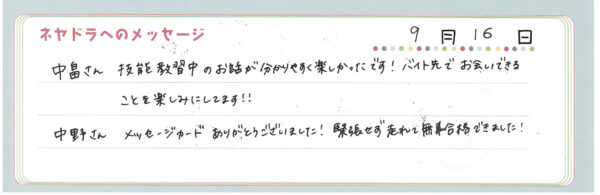 ネヤドラへのメッセージ
9月16日
中畠さん 技能教習中のお話が分かりやすく楽しかったです！バイト先でお会いできる
ことを楽しみにしてます!!
中野さん メッセージカードありがとうございました！緊張せず走れて無事合格できました！